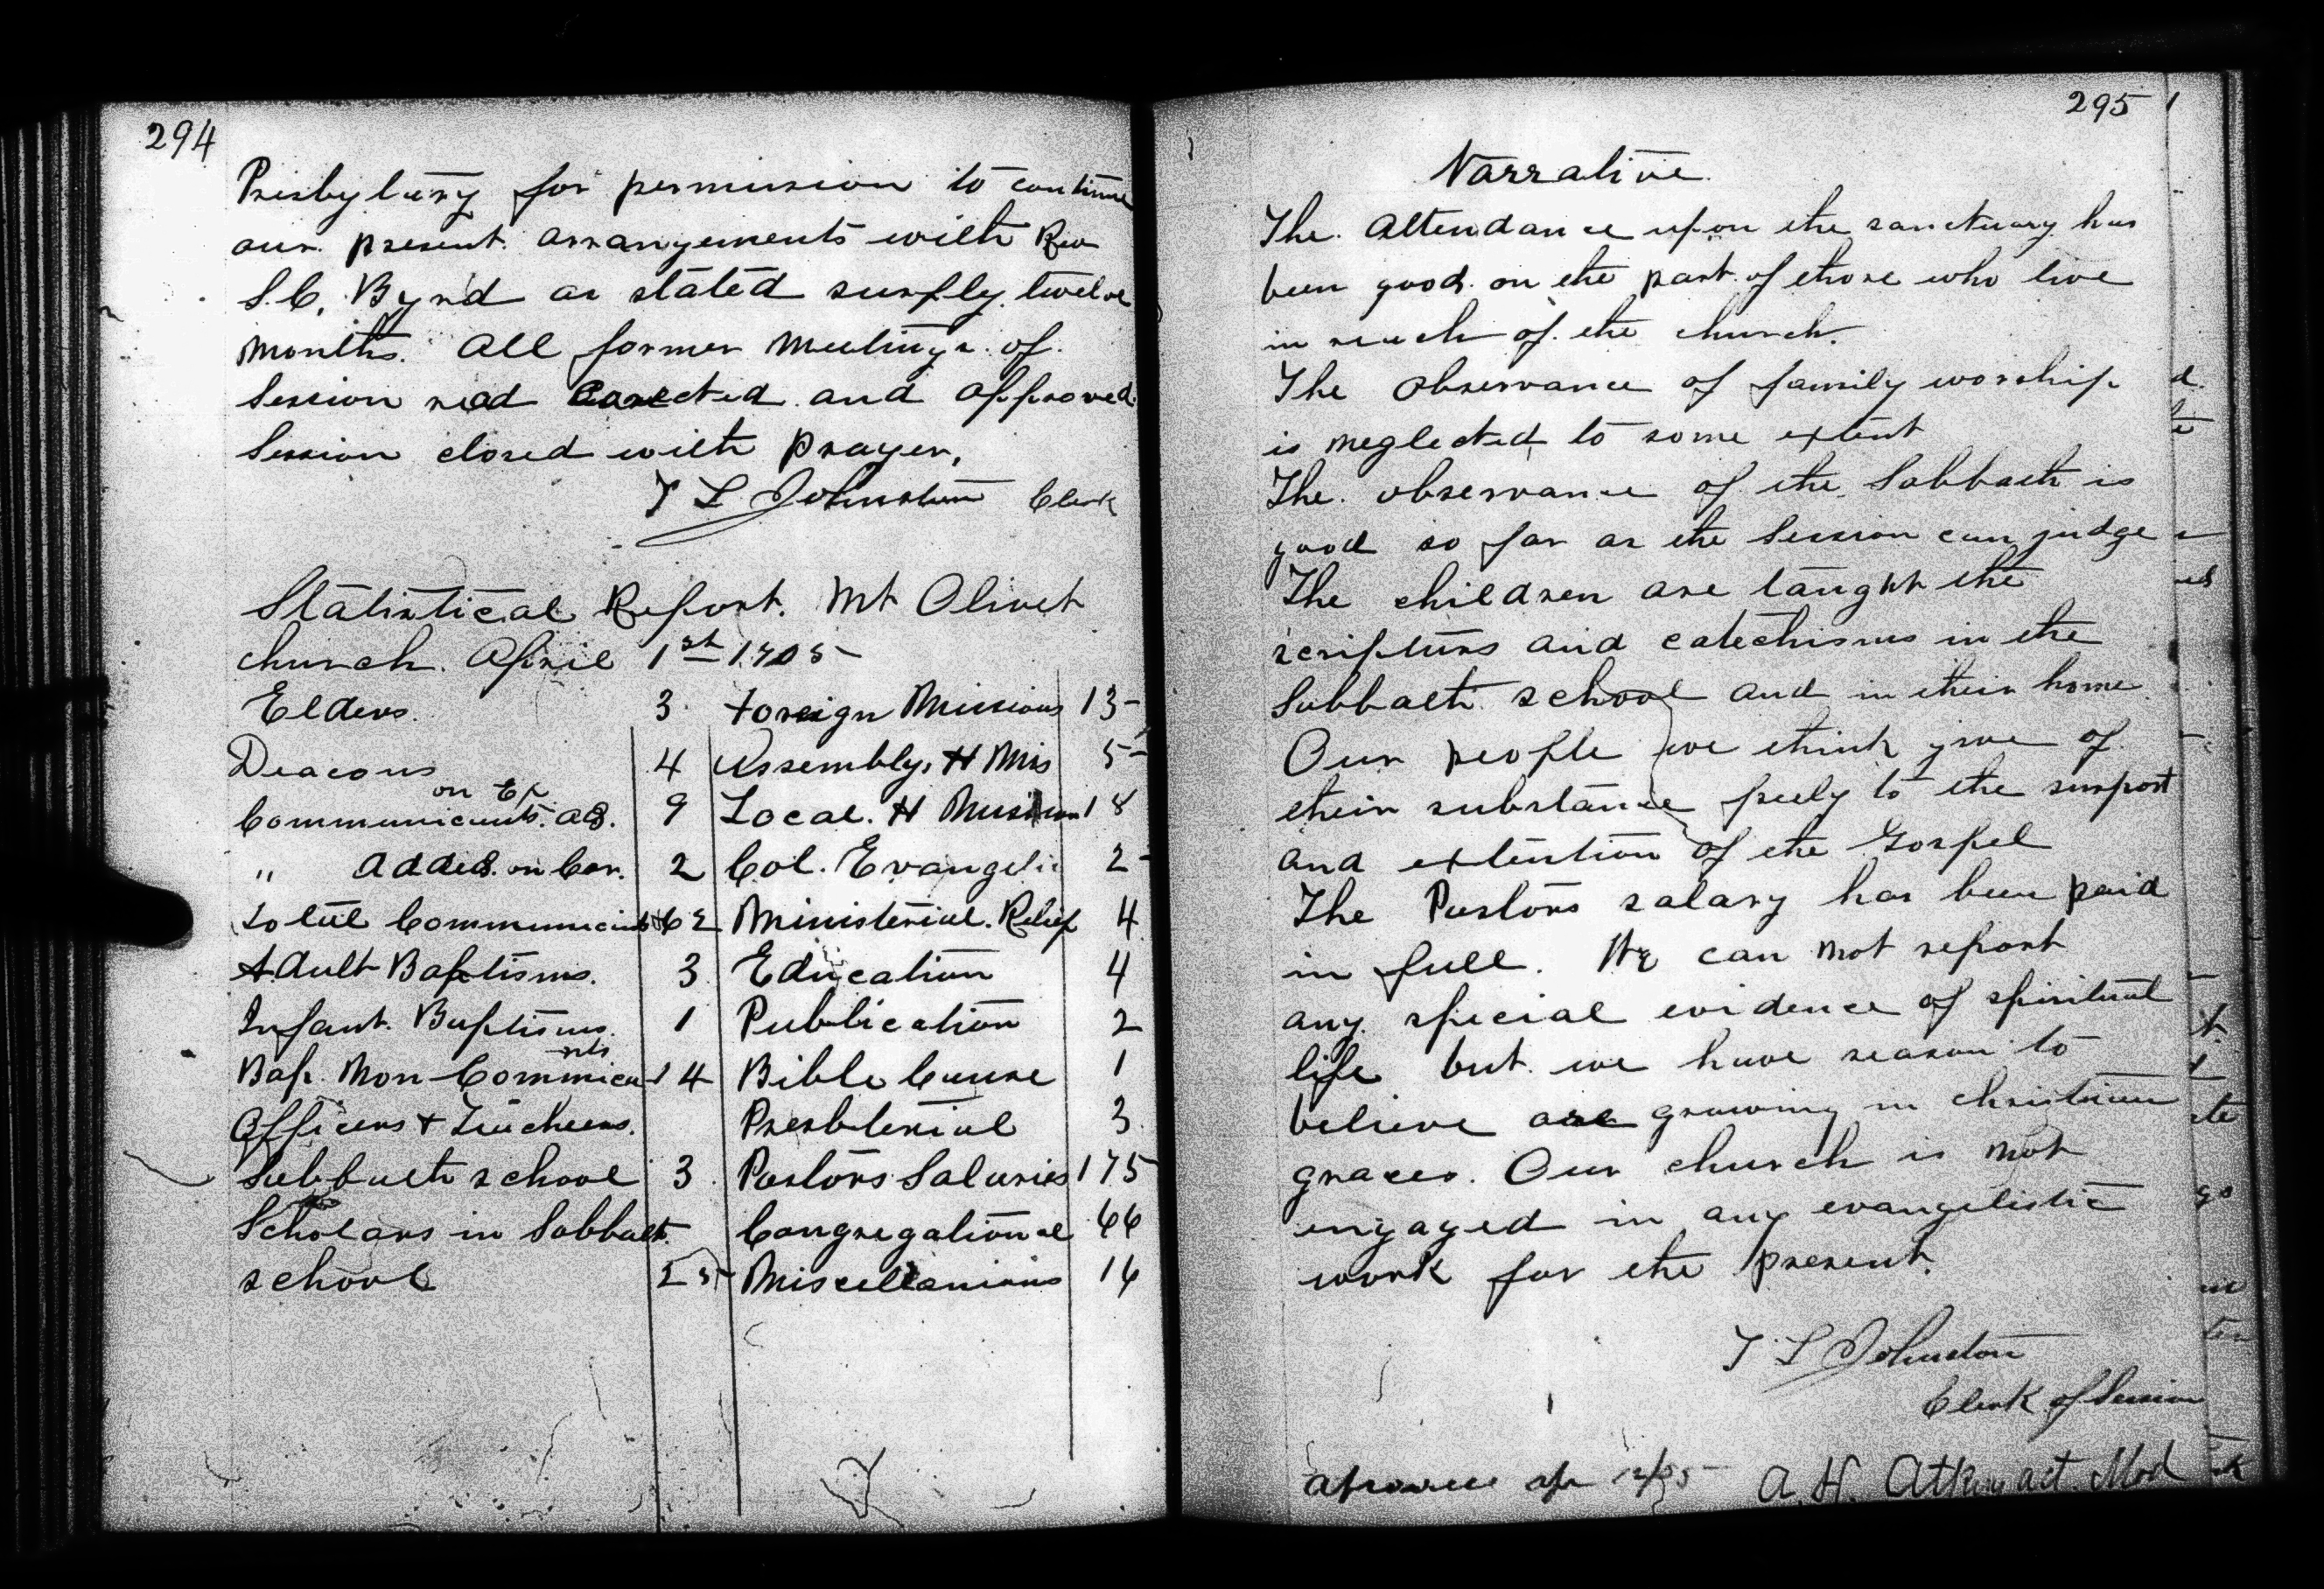 294
Presbytery for permission to continue
our present arrangements with Rev
S.C. Byrd as stated supply twelve
months. All former meetings of
Session read corected and approved.
Session closed with prayer,
T L Johnston Clerk
Statistical Report. Mt Olivet
church. April 1st 1905
Elders. 3 Foreign Missions 13
Deacons 4 Assembly, H Mis 5
Communicants. ad. on Ex 9 Local. H Mission 18
" Added. on Cer. 2 Col. Evangelis 2
Total Communicants 62 Ministerial. Relief 4
Adult Baptisms. 3 Education 4
Infant. Baptisms. 1 Publication 2
Bap. Non Communicants 14 Bible Cause 1
Officers + Teachers. Presbterial 3
Sabbath school 3 Pastors Salaries 175
Scholars in Sabbath. Congregational 66
school 25 Miscellanious 16
295
Narrative.
The. Attendance upon the sanctuary has
been good. on the part. of those who live
in reach of. the church.
The Observance of family worship
is neglected, to some extent
The. observance of the Sabbath is
good so far as the Session can judge
The children are taught the
scripturs and catechisms in the
Sabbath school and in their home
Our people we think give of
their substance freely to the support
and extention of the Gospel
The Pastors salary has been paid
in full. We can not report
any special evidence of spiritual
life but we have reason to
believe are growing in christian
graces. Our church is not
engaged in any evangelistic
work for the present.
T L Johnston
Clerk of Session
A. H. Atkins act. Mod